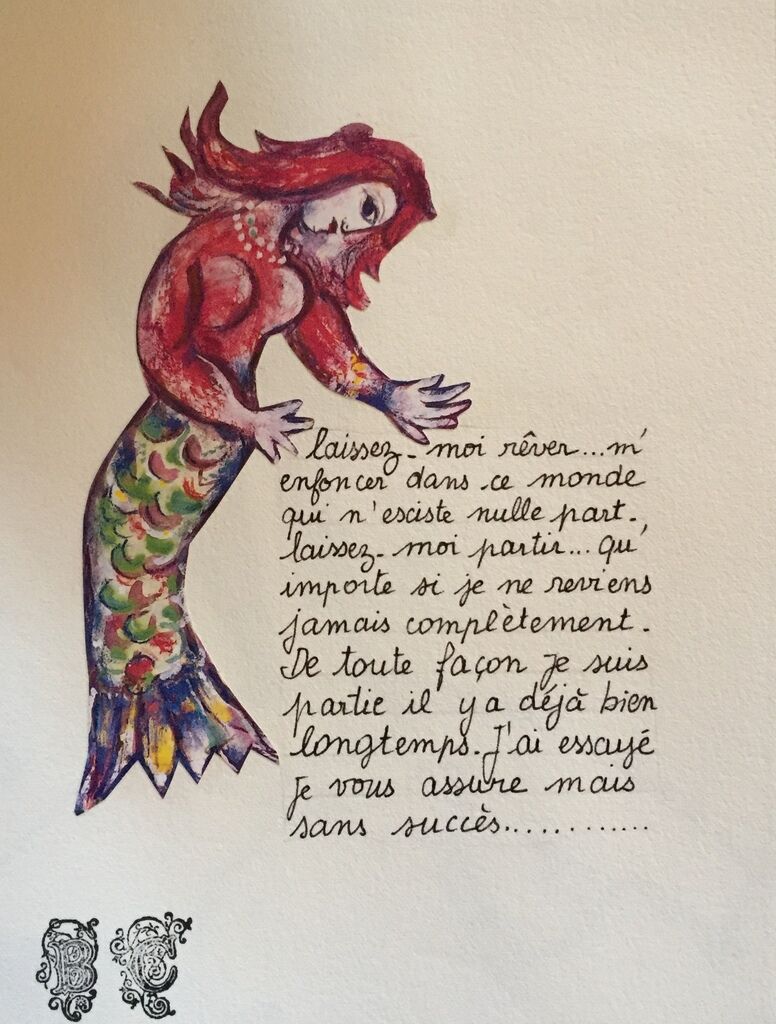 laissez-moi rêver...m'
enfoncer dans ce monde
qui n'esciste nulle part.
laissez-moi partir...qu'
importe si je ne reviens
jamais complètement.
De toute façon je suis
partie il y a déjà bien
longtemps. J'ai essayé
Je vous assure mais
sans succès............
B C